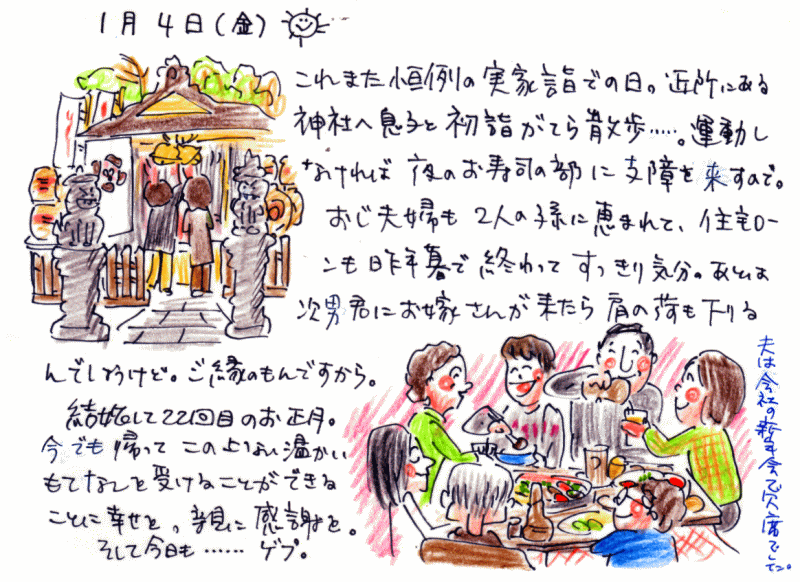 1月4日(金)
これまた恒例の実家詣での日。近所にある
神社へ息子と初詣がてら散歩……。運動し
なければ夜のお寿司の部に支障を来すので。
おじ夫婦も2人の孫に恵まれて、住宅ロー
ンも昨年暮で終わってすっきり気分。あとは
次男君にお嫁さんが来たら肩の荷も下りる
んでしょうけど。ご縁のもんですから。
結婚して22回目のお正月。
今でも帰ってこの上ない温かい
もてなしを受けることができる
ことに幸せと、親に感謝を。
そして今日も……ゲプ。
夫は会社の新年会で欠席でした。